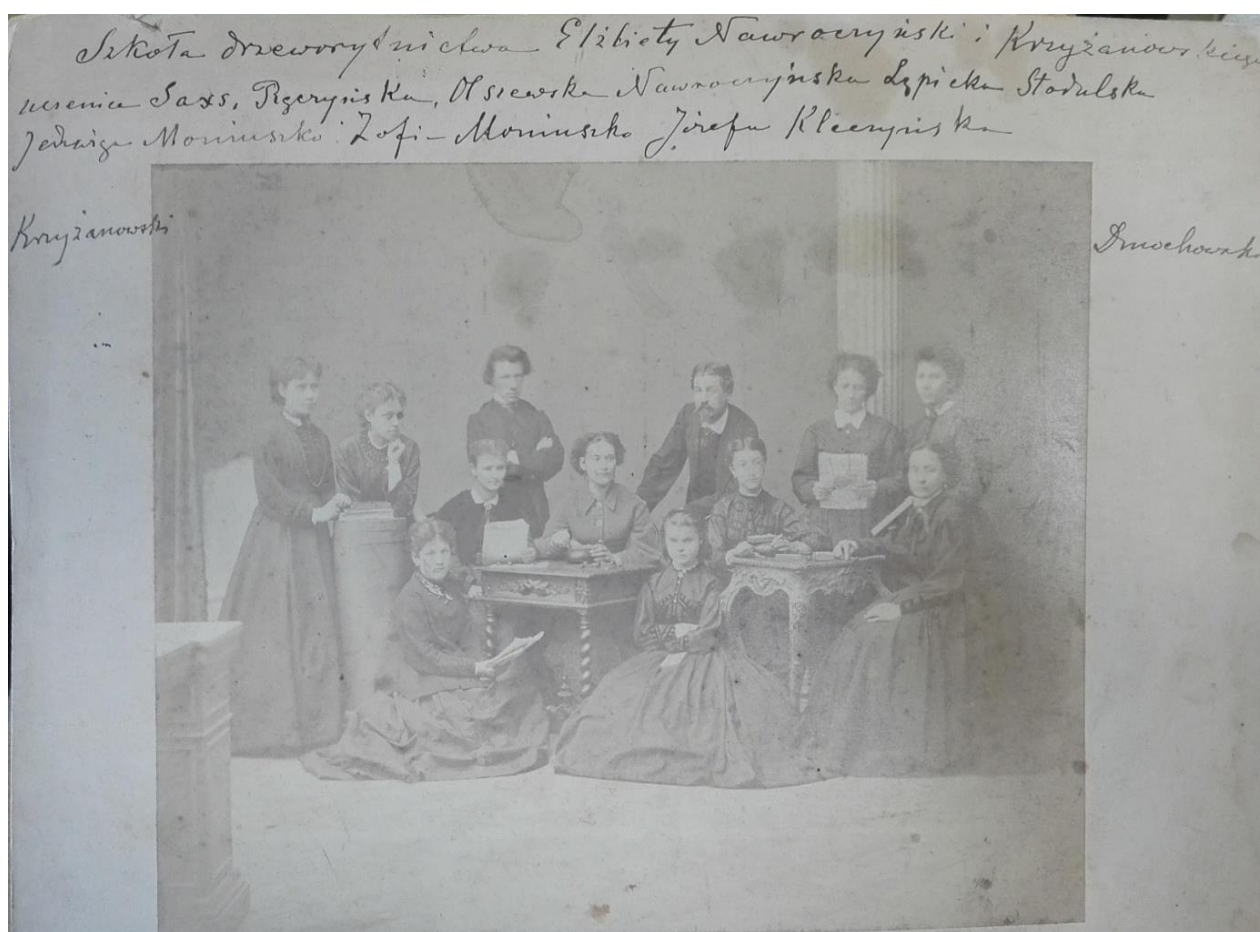 Szkoła drzeworytnictwa Elżbiety Nawroczyński i Krzyżanowskiego
uczenice Saxs, Olszewska Nawroczyńska Łąpicka Stodulska
Jadwiga Moniuszko Zofi- Moniuszko Józefa Kleczyńska
Krzyżanowski
Dmochowski